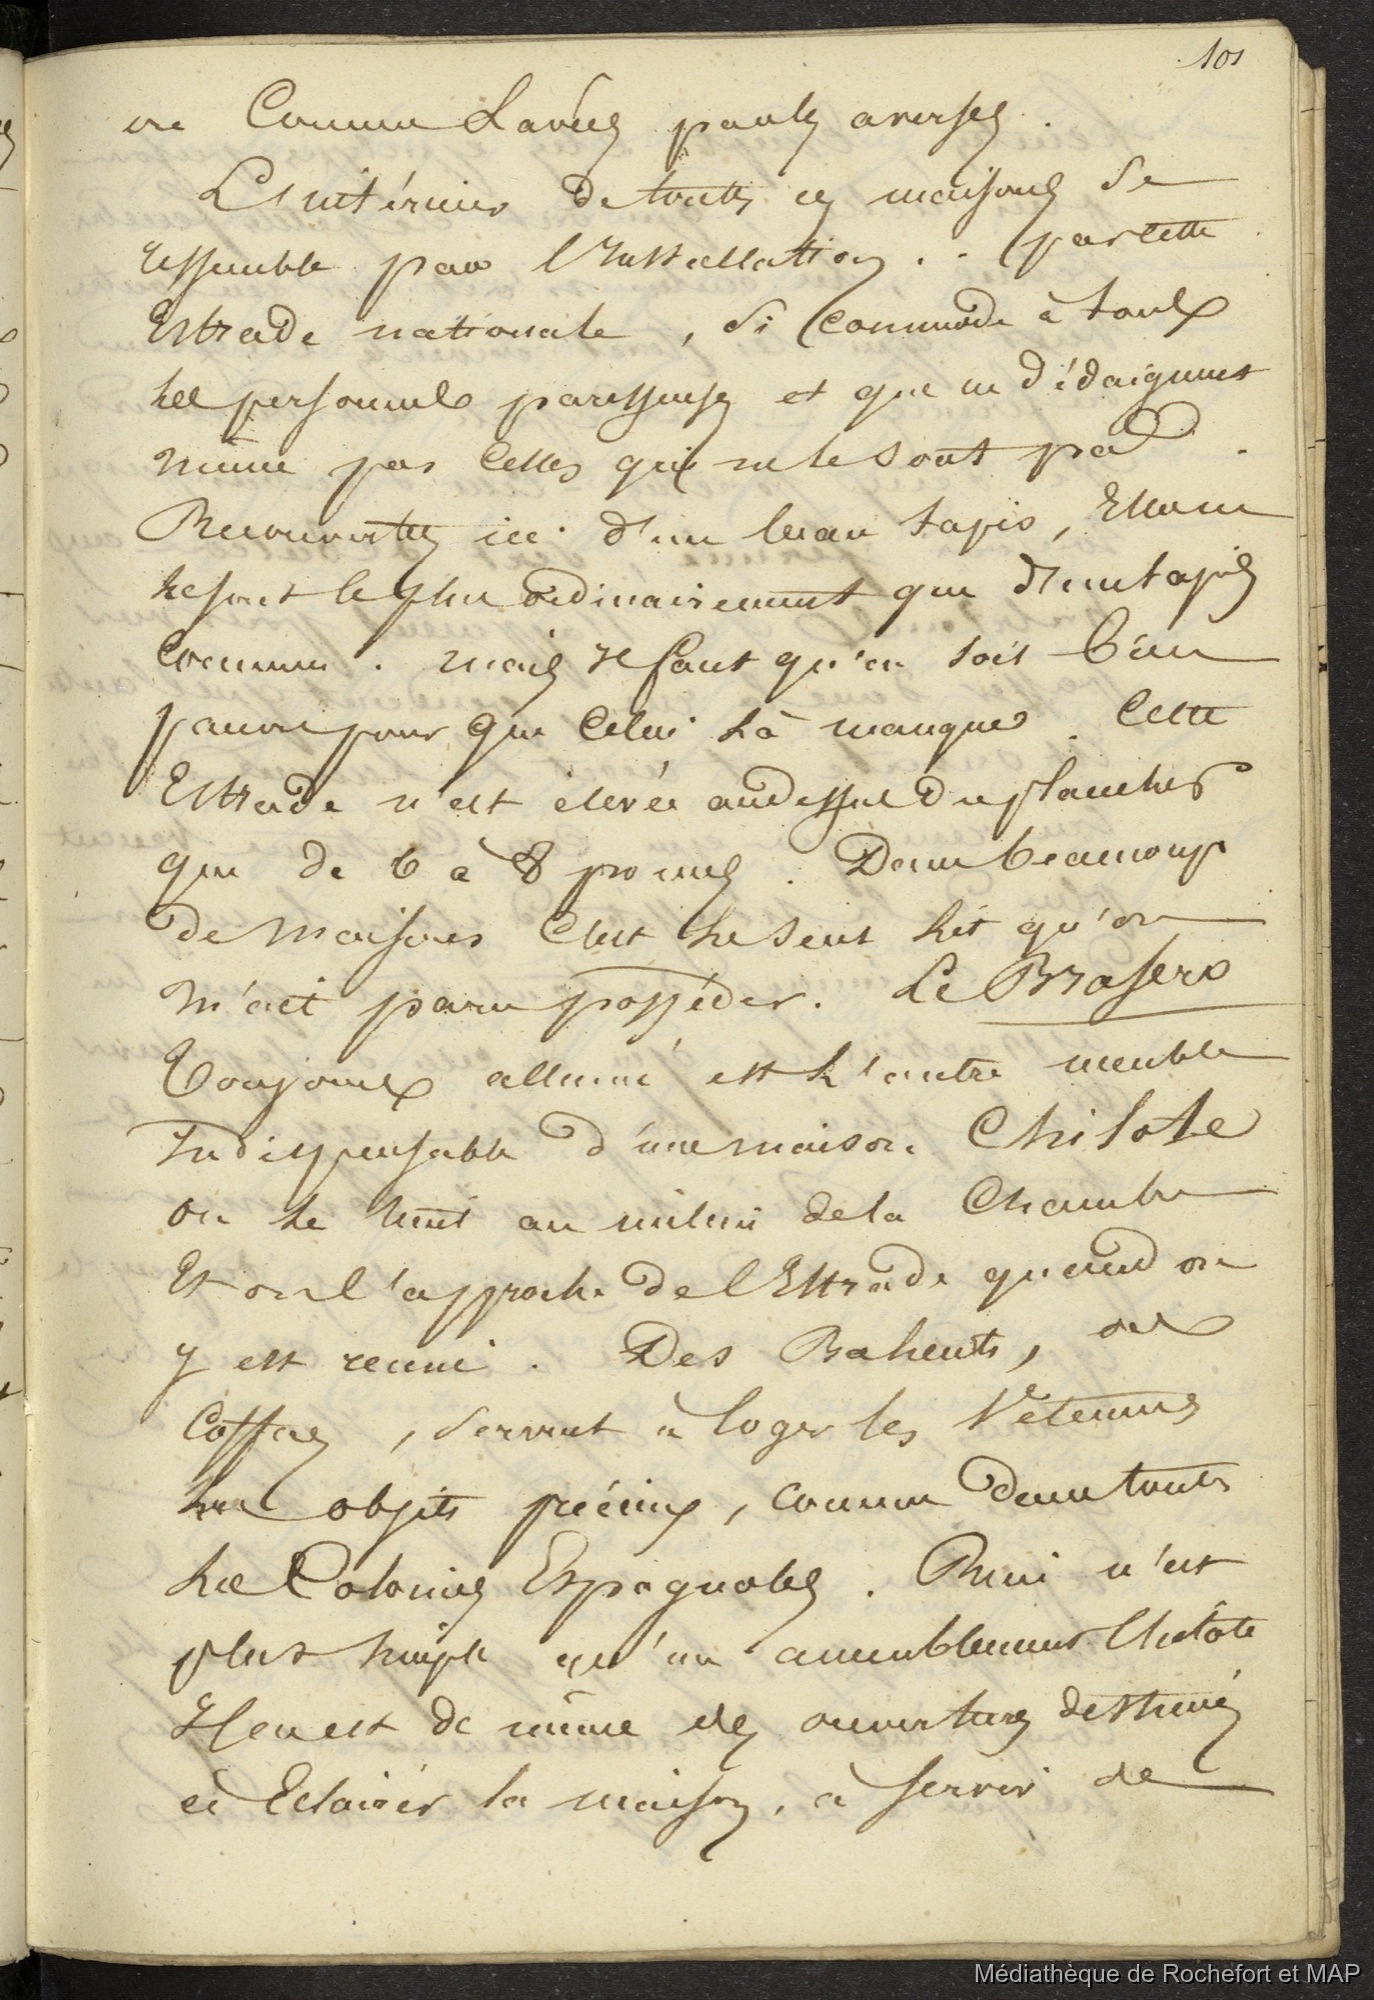 101
ou Comme Lavées par les averses.
L'intérieur de toutes ces maisons se
ressemble par l'Installation.. par cette
Estrade nationale, si commode à toutes
les personnes paresseuses et que ne dédaignent
même pas celles qui ne le sont pas.
Recouvertes ici d'un beau tapis, Elles ne
le sont le plus ordinairement que d'un tapis
Commun. mais Il faut qu'on soit bien
pauvre pour que Celui là manque. Cette
Estrade n'est élevée audessus du plancher
que de 6 à 8 pouces. Dans beaucoup
de Maisons C'est le seul lit qu'on
m'ait paru posséder. Le Brasero
Toujours allumé est l'autre meuble
Indispensable d'une maison Chilote
on le tient au milieu de la Chambre
Et on l'approche de l'Estrade quand on
y est reuni. Des Bahuts, ou
Coffres, servent à loger les Vêtemens
les objets précieux, comme dans toutes
les Colonies Espagnoles. Rien n'est
plus simple qu'un ameublement Chilote
Il en est de même des ouvertures destinées
à Eclairer la maison, à servir de
Médiathèque de Rochefort et MAP